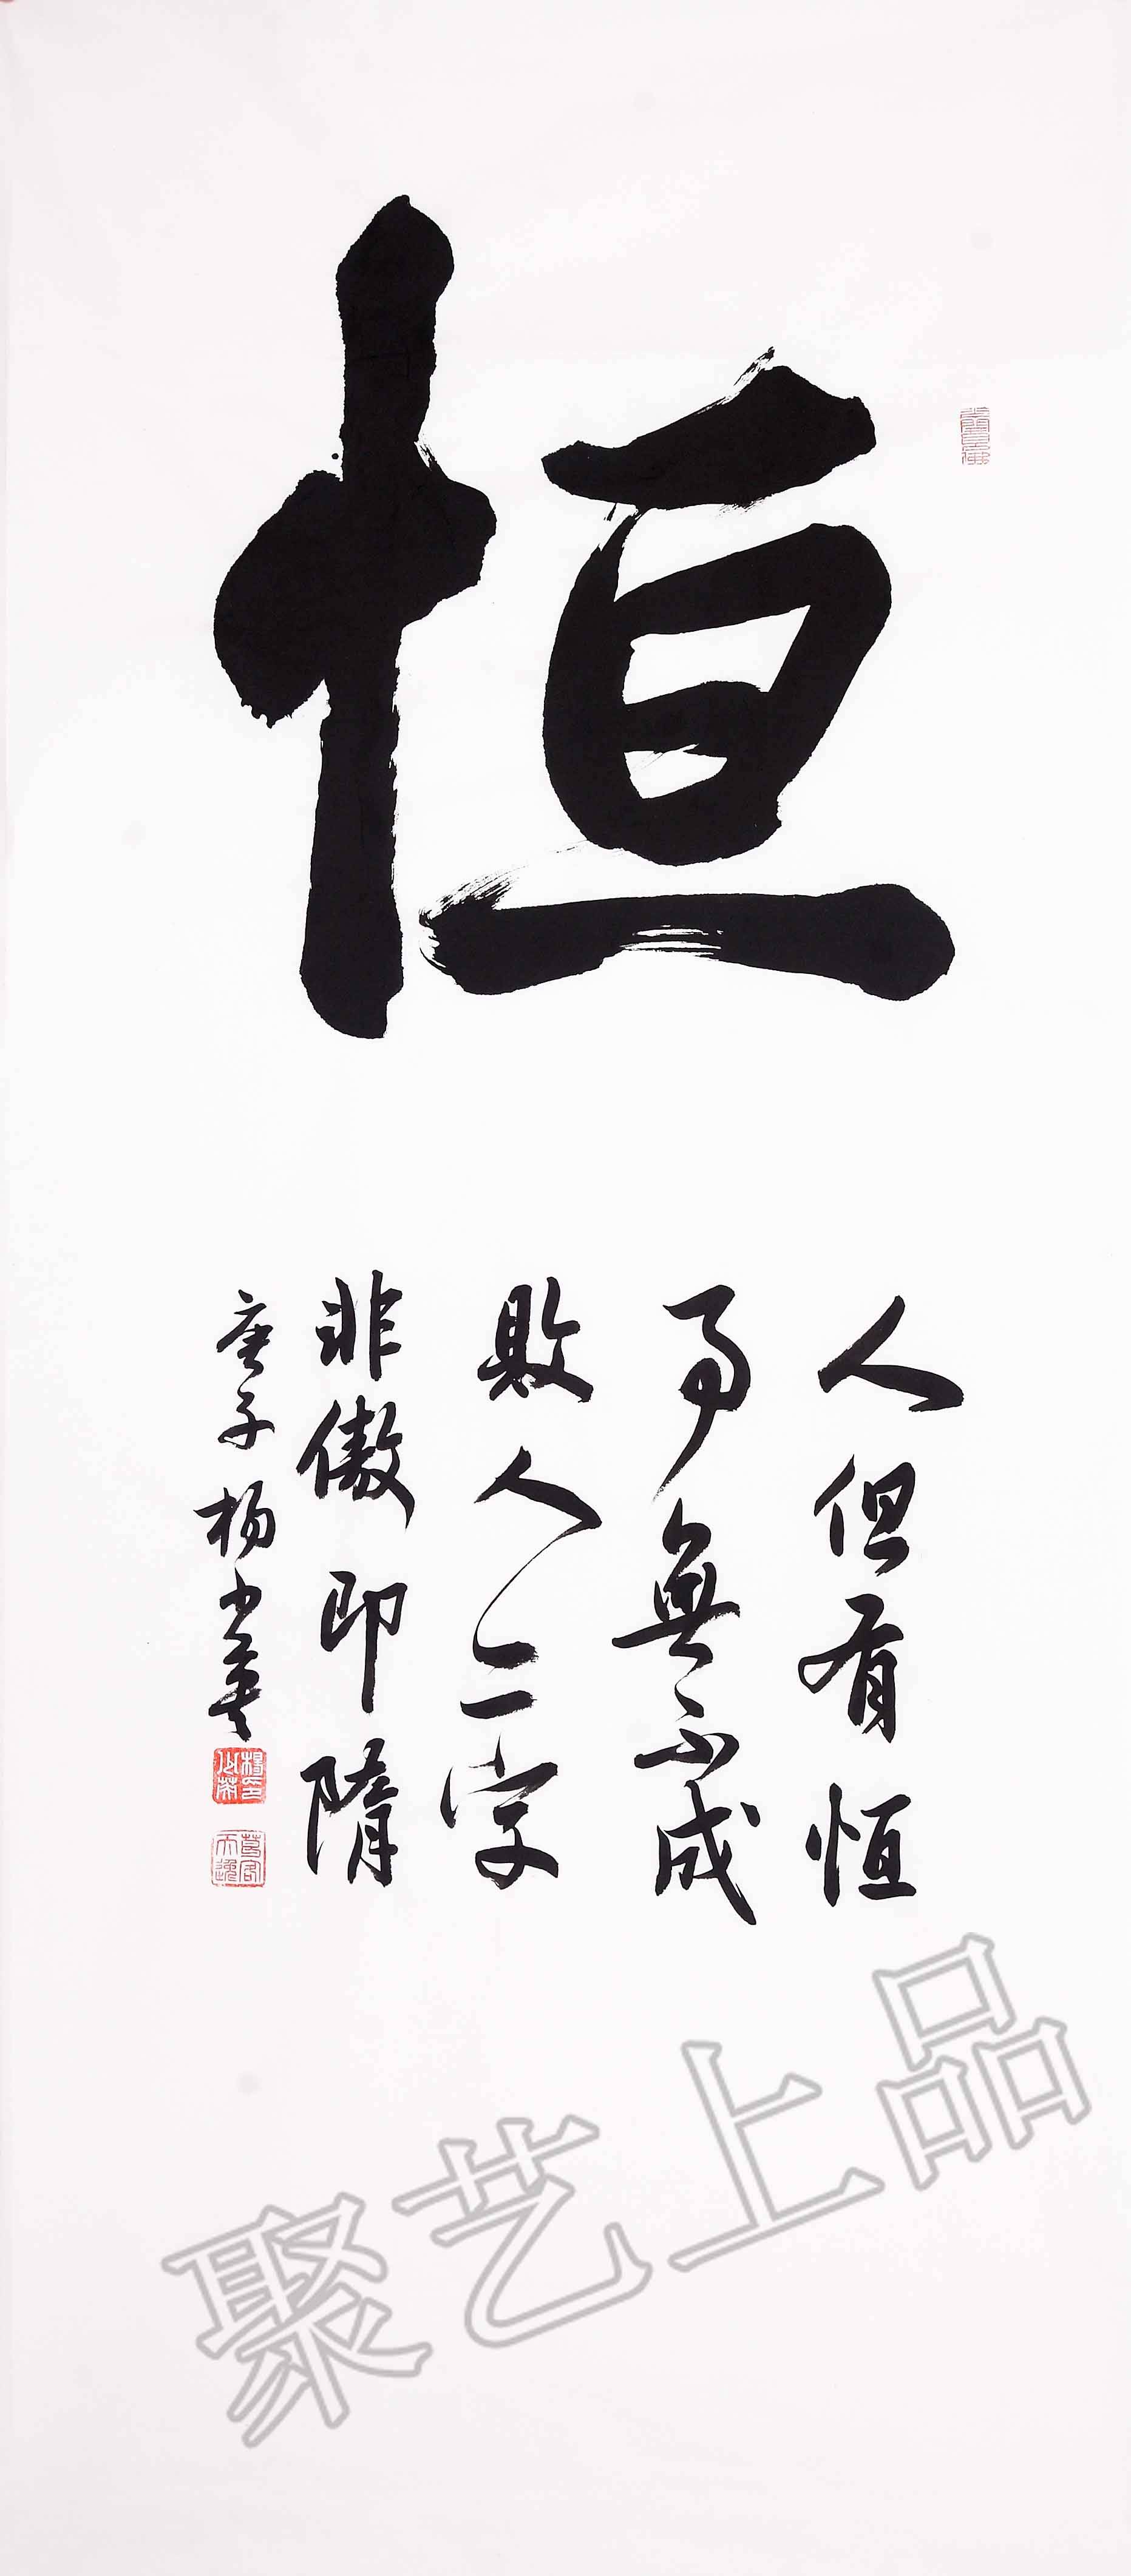 恒
人但有恒
事無不成
敗人二字
非傲即隋
庚子杨少英
聚艺上品